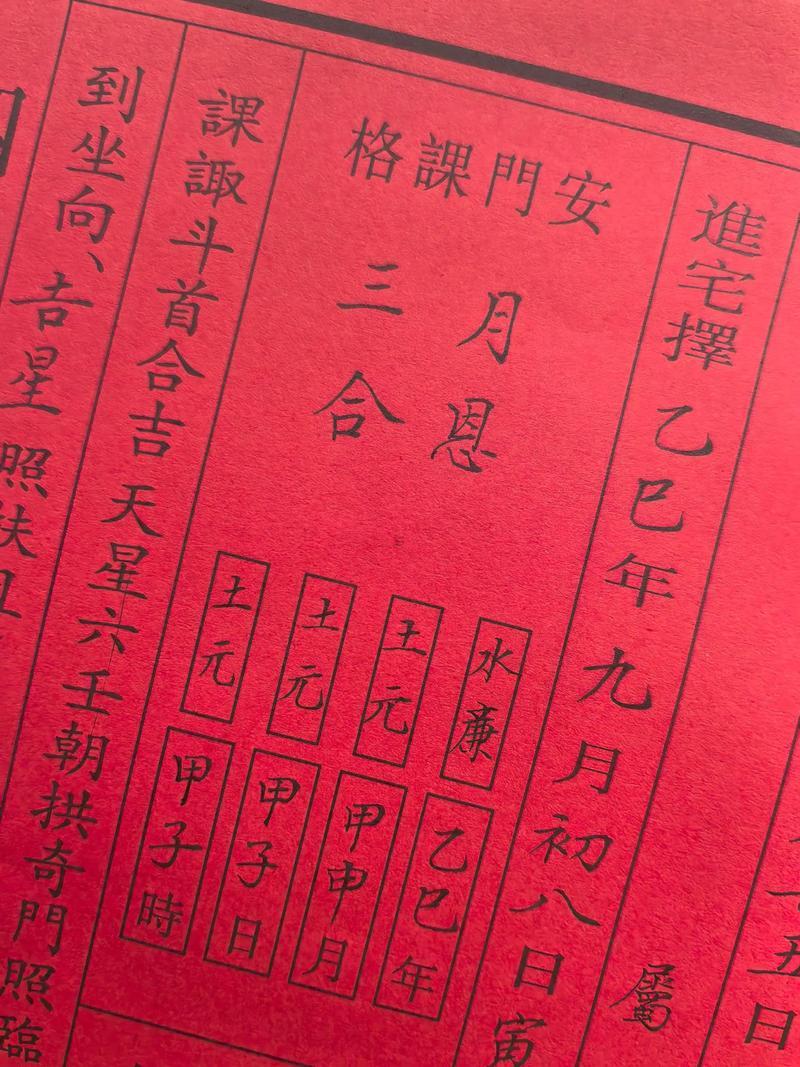 十五日
屬
進宅擇 乙巳年 九月初八日寅
安門課格
月恩
三合
水廉 乙巳年
土元 甲申月
土元 甲子日
土元 甲子時
課諏斗首合吉 天星六壬朝拱奇門照臨
到坐向、吉星 照扶